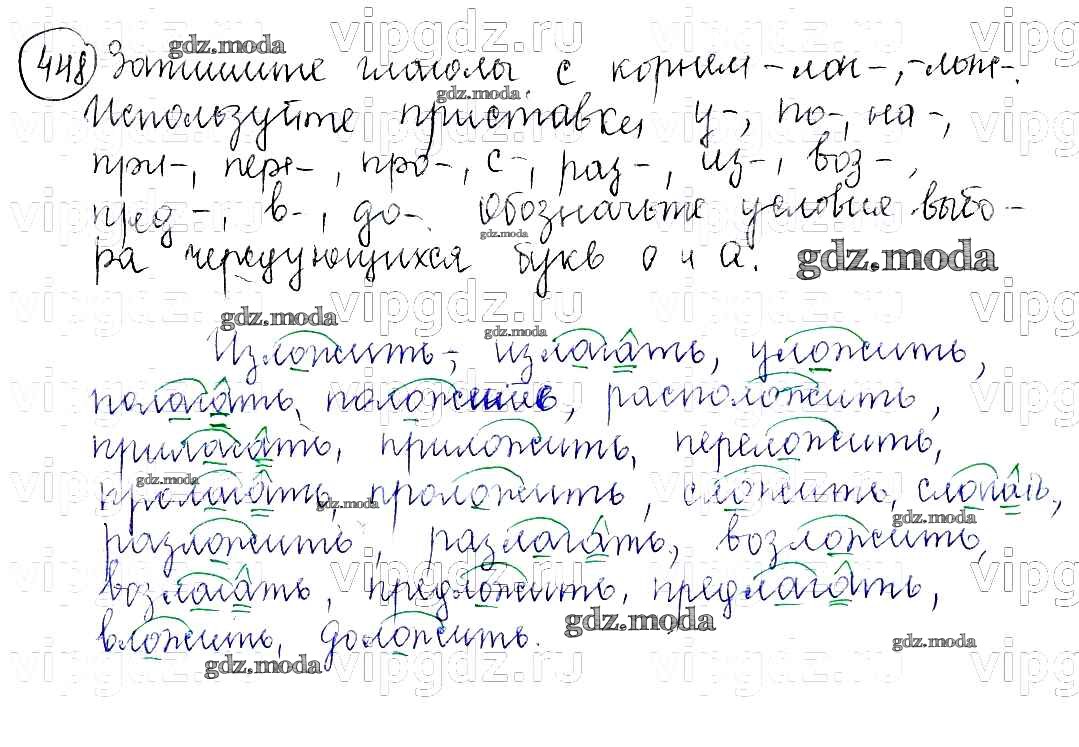 448 Запишите глаголы с корнем -лаг-, -лож-.
Используйте приставки у-, по-, на-,
при-, пере-, про-, с-, раз-, из-, воз-,
пред-, в-, до-. Обозначьте условия выбо-
ра чередующихся букв о и а.
Изложить, излагать, уложить,
полагать, положить, расположить,
прилагать, приложить, переложить,
пролагать, проложить, сложить, слогать,
разложить, разлагать, возложить,
возлагать, предложить, предлагать,
вложить, доложить.
gdz.moda
vipgdz.ru